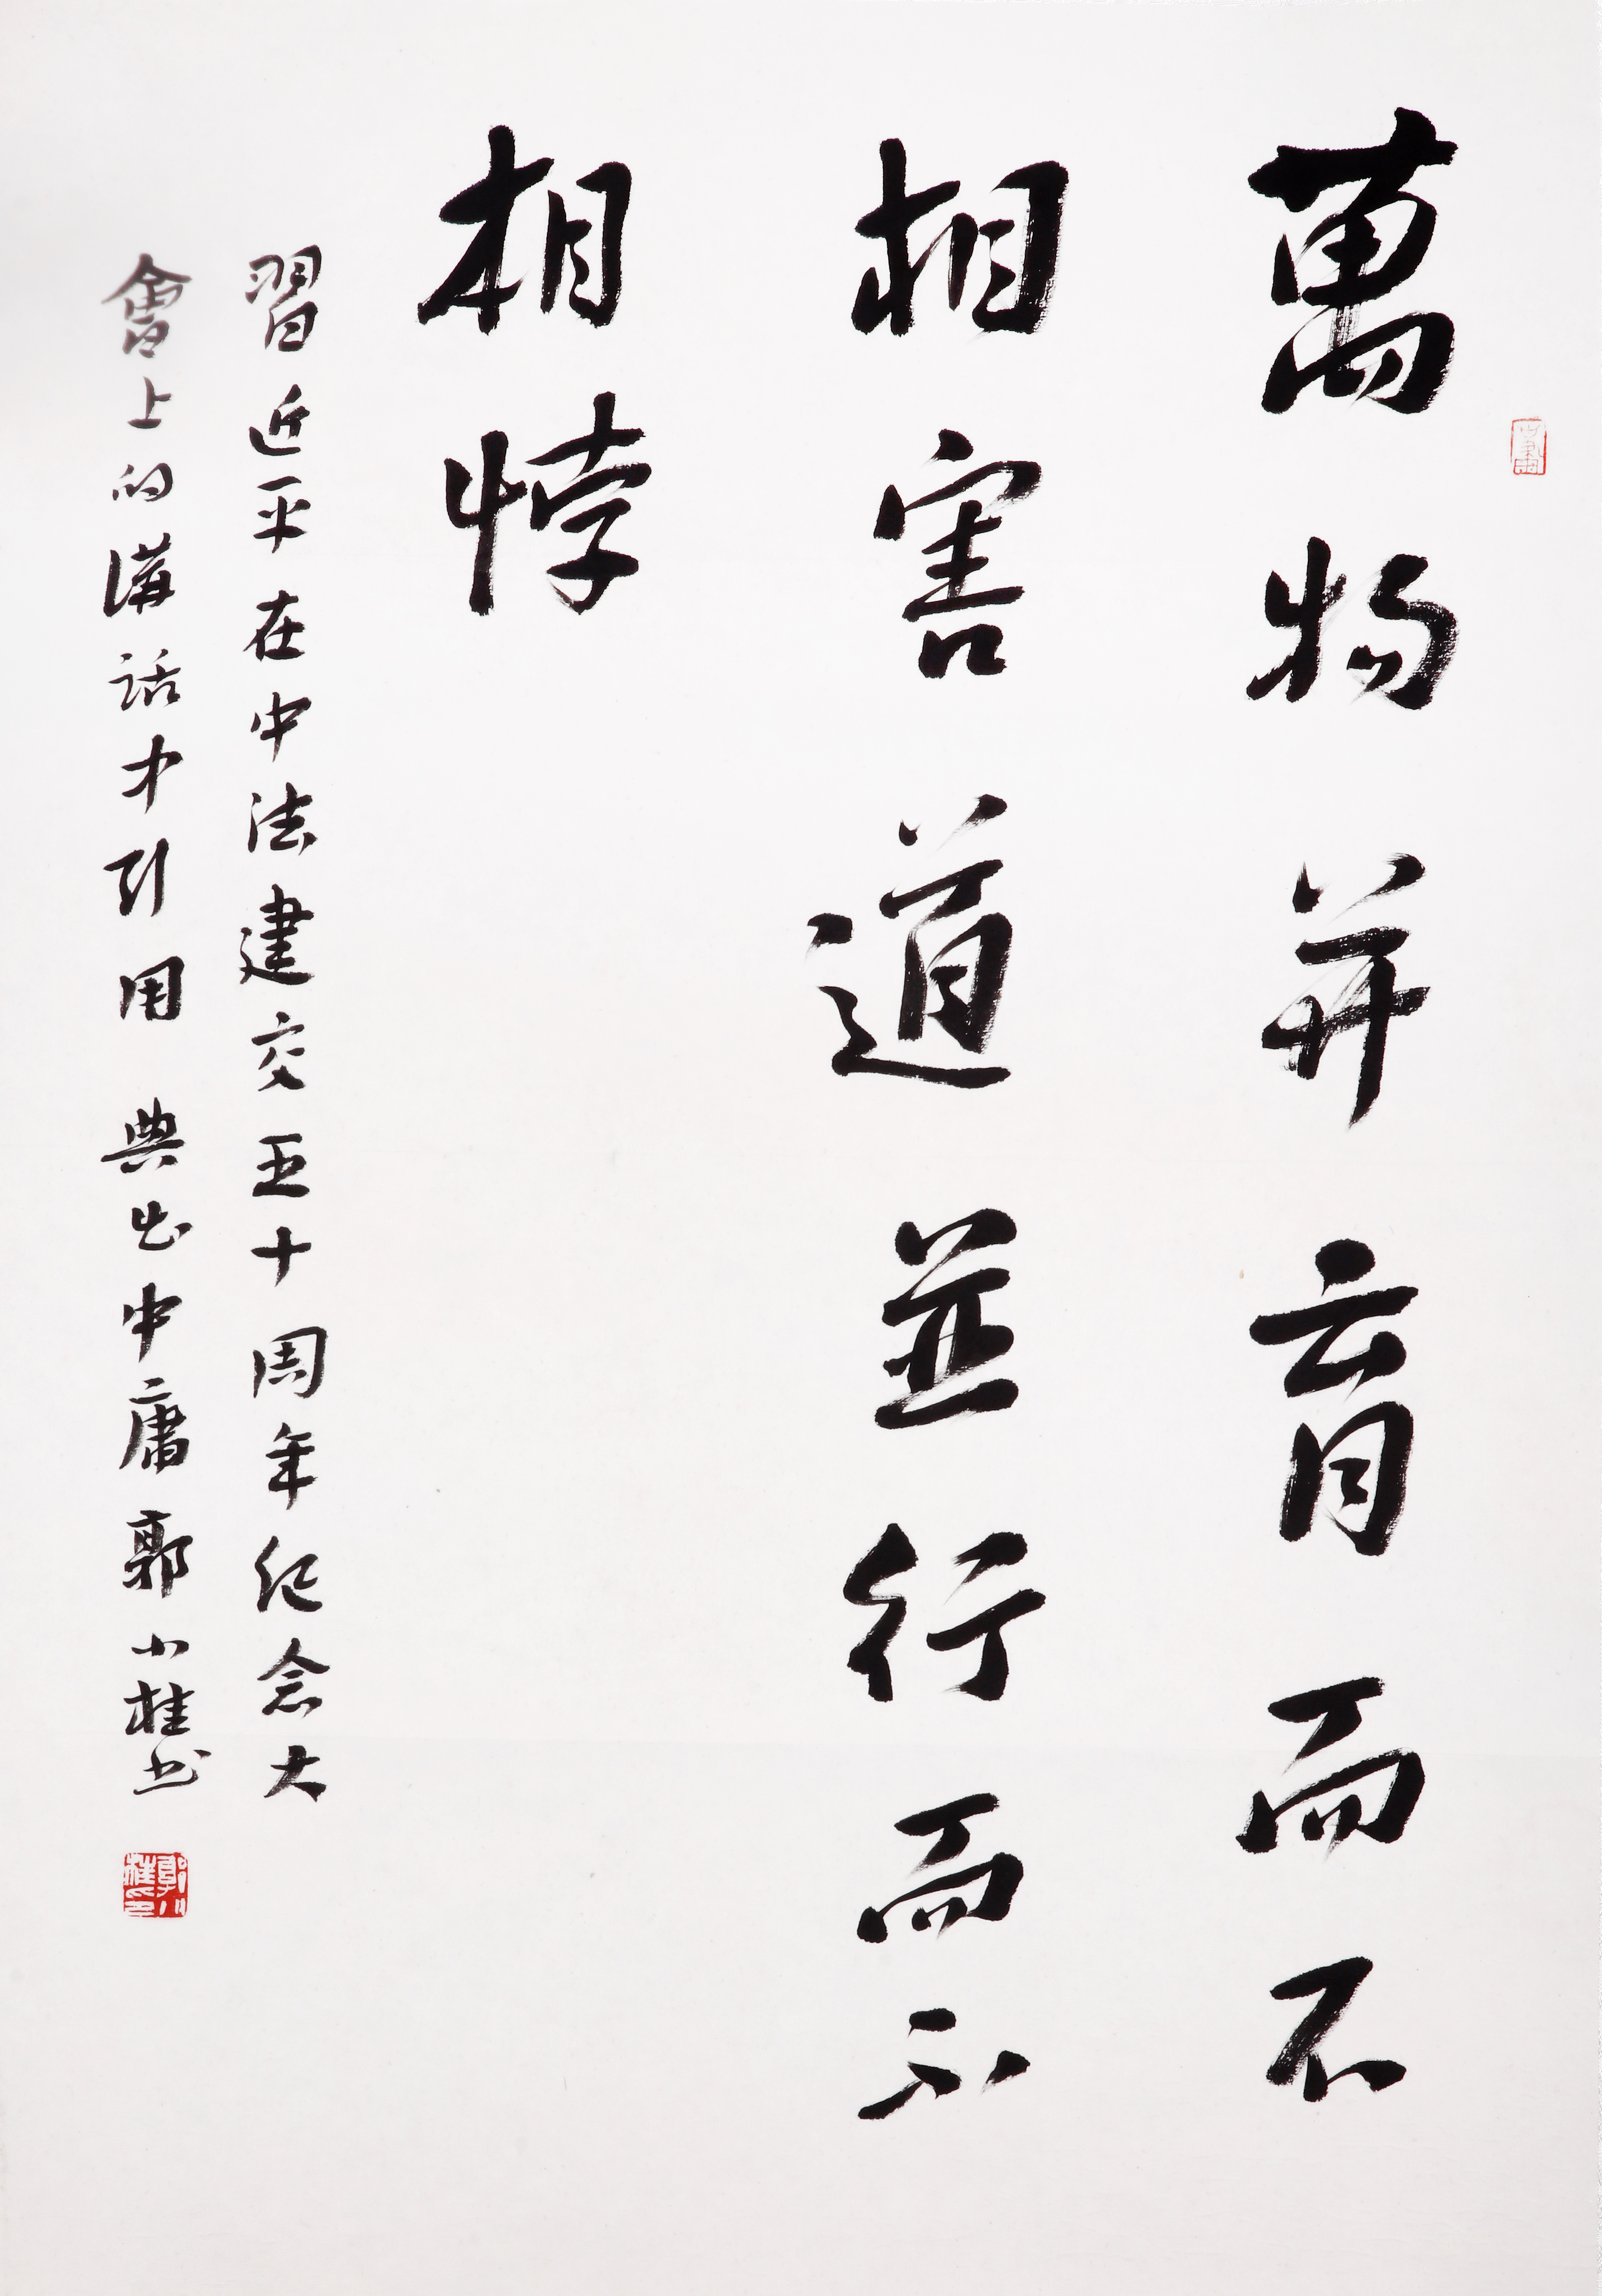 萬物并育而不
相害道並行而不
相悖
習近平在中法建交五十周年纪念大
會上的講話中引用 典出中庸 郭小桂书